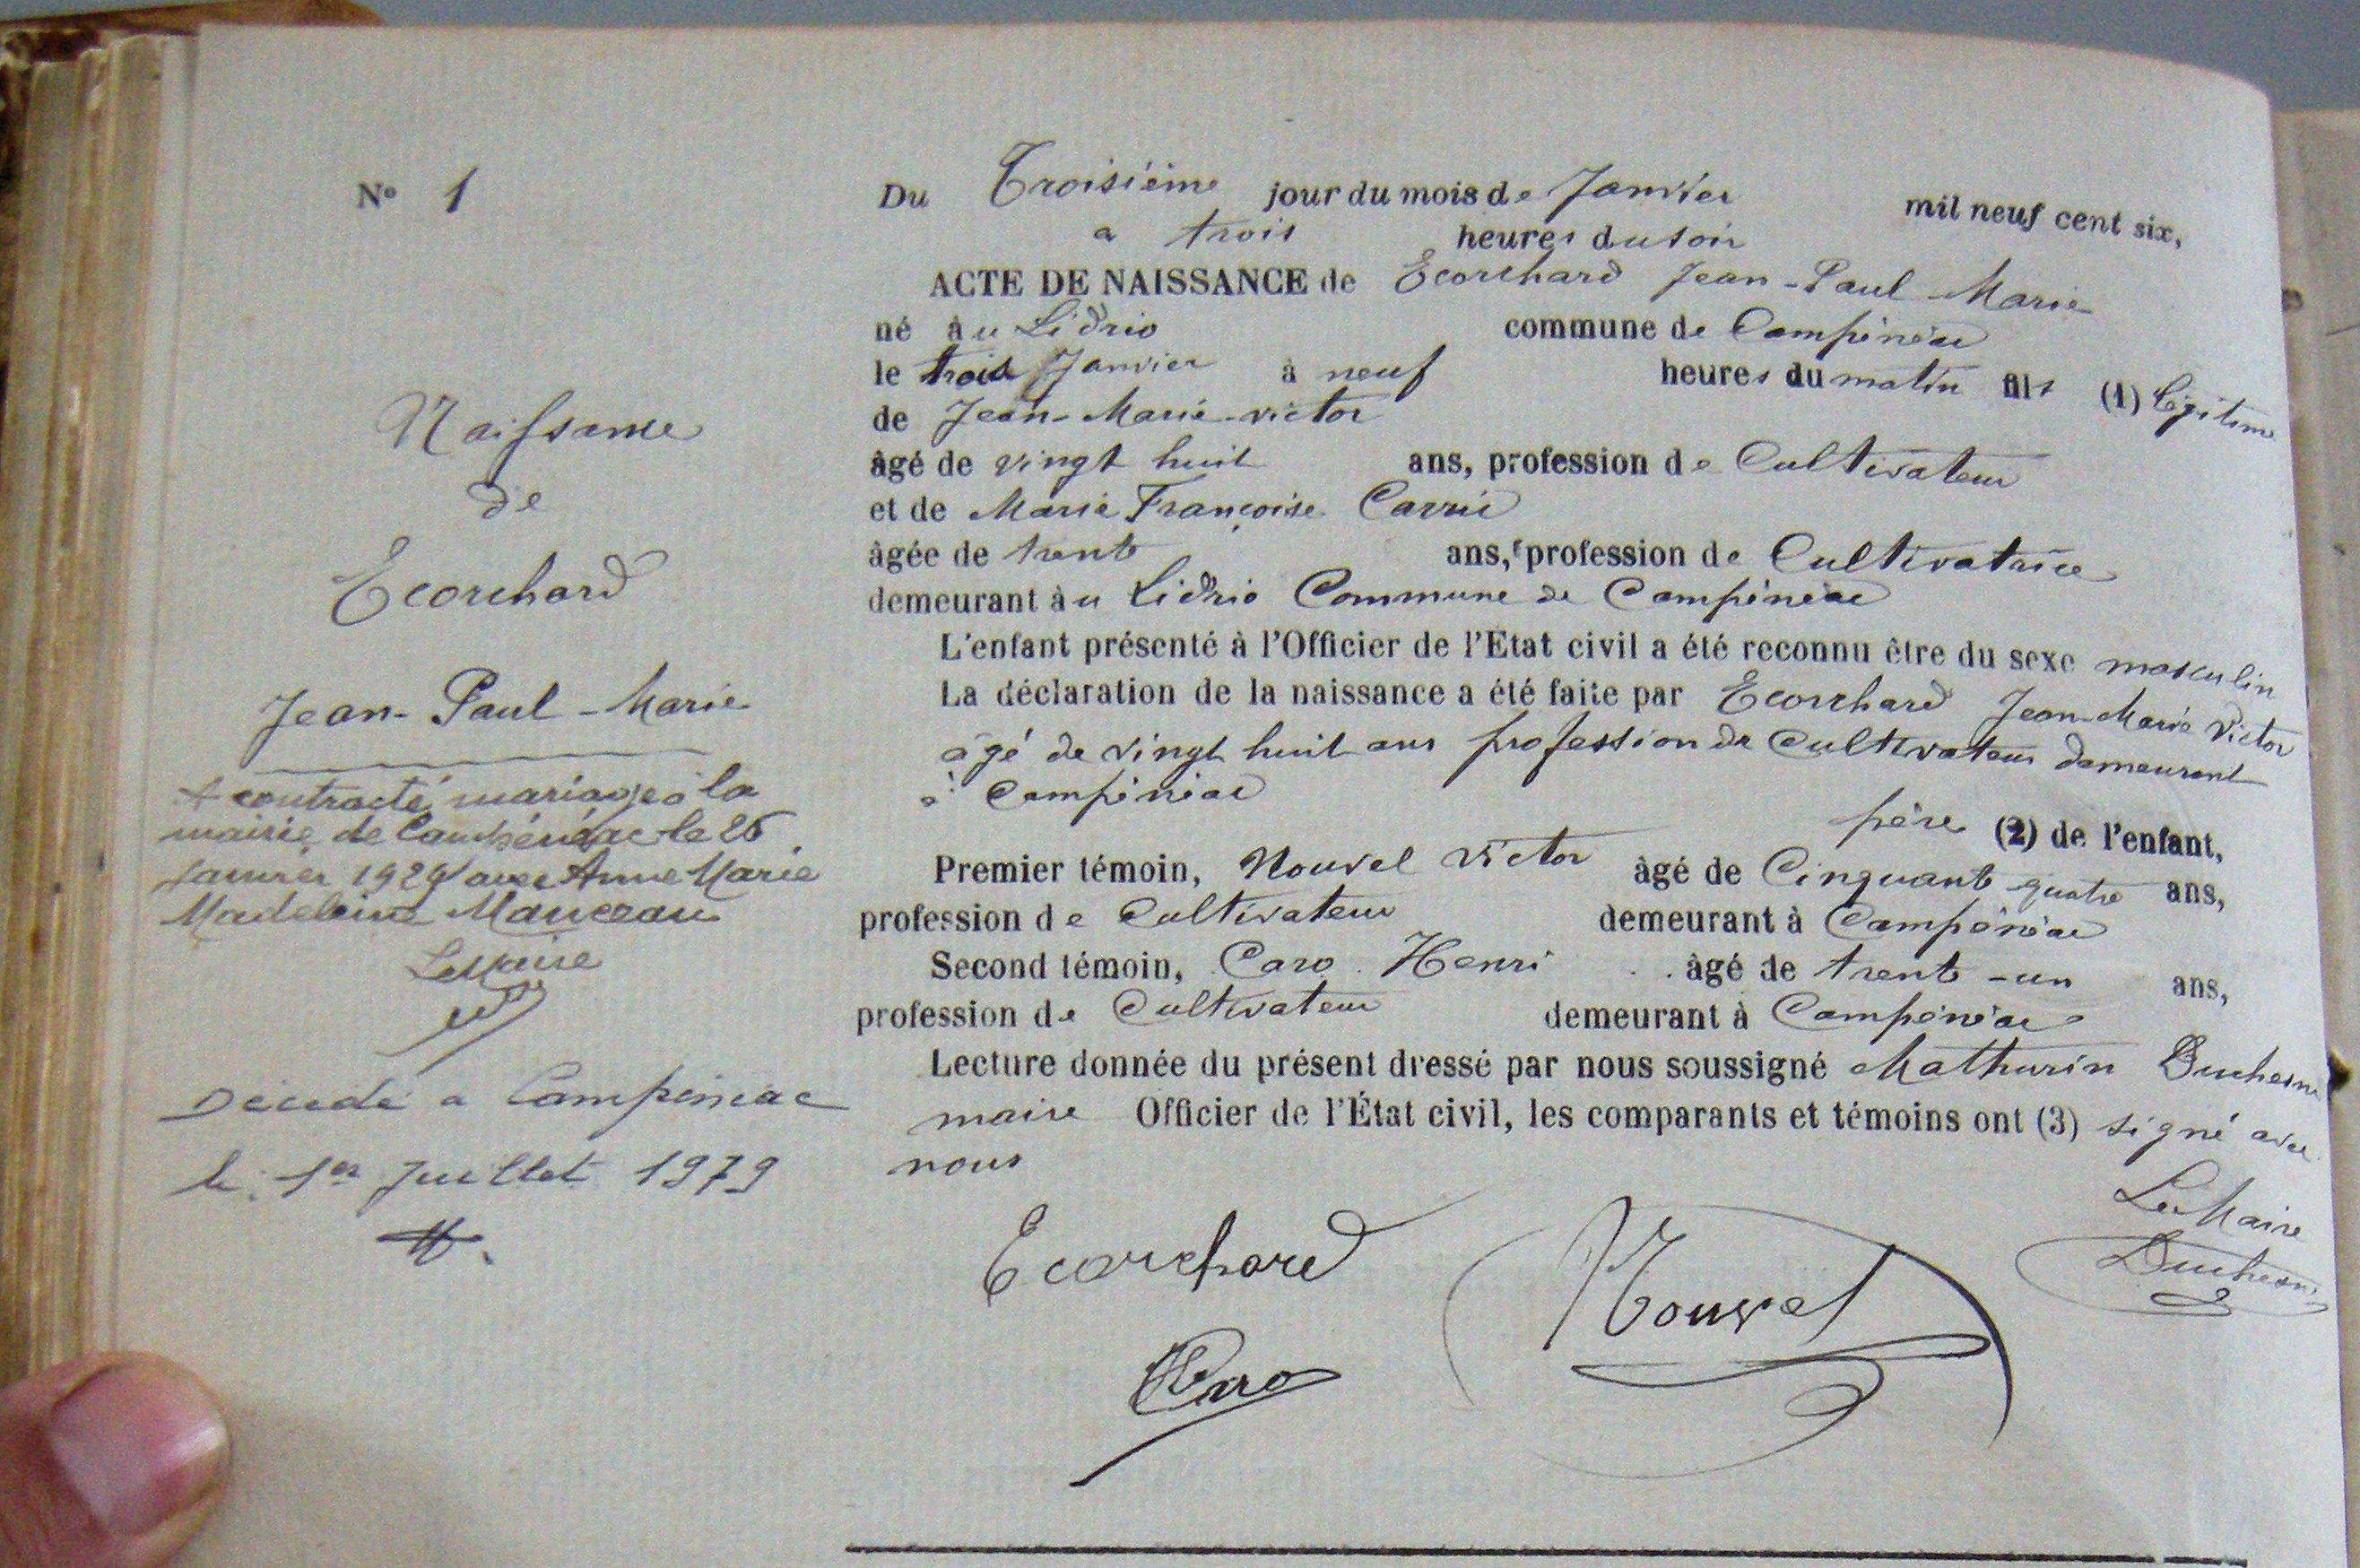 N° 1
Naissance
de
Ecorchard
Jean-Paul-Marie
a contracté mariage à la
mairie de Campénéac le 26
Janvier 1929 avec Anne Marie
Madeleine
Le Maire
Décédé a Campénéac
le 1er Juillet 1979
Du Troisième jour du mois de Janvier mil neuf cent six,
a trois heures du soir
ACTE DE NAISSANCE de Ecorchard Jean-Paul-Marie
né au Lidrio commune de Campénéac
le trois Janvier à neuf heures du matin fils (1) légitime
de Jean-Marie-victor
âgé de vingt huit ans, profession de Cultivateur
et de Marie Françoise
âgée de trente ans, profession de Cultivatrice
demeurant au Lidrio Commune de Campénéac
L'enfant présenté à l'Officier de l'Etat civil a été reconnu être du sexe masculin
La déclaration de la naissance a été faite par Ecorchard Jean-Marie Victor
âgé de vingt huit ans profession de Cultivateur demeurant
à Campénéac
père (2) de l'enfant,
Premier témoin, Nouvel Victor âgé de Cinquante quatre ans,
profession de Cultivateur demeurant à Campénéac
Second témoin, Caro Henri âgé de trente-un ans,
profession de Cultivateur demeurant à Campénéac
Lecture donnée du présent dressé par nous soussigné Mathurin Duchesne
maire Officier de l'État civil, les comparants et témoins ont (3) signé avec
nous
Le Maire
Ecorchard
Nouvel
Duchesne
HCaro